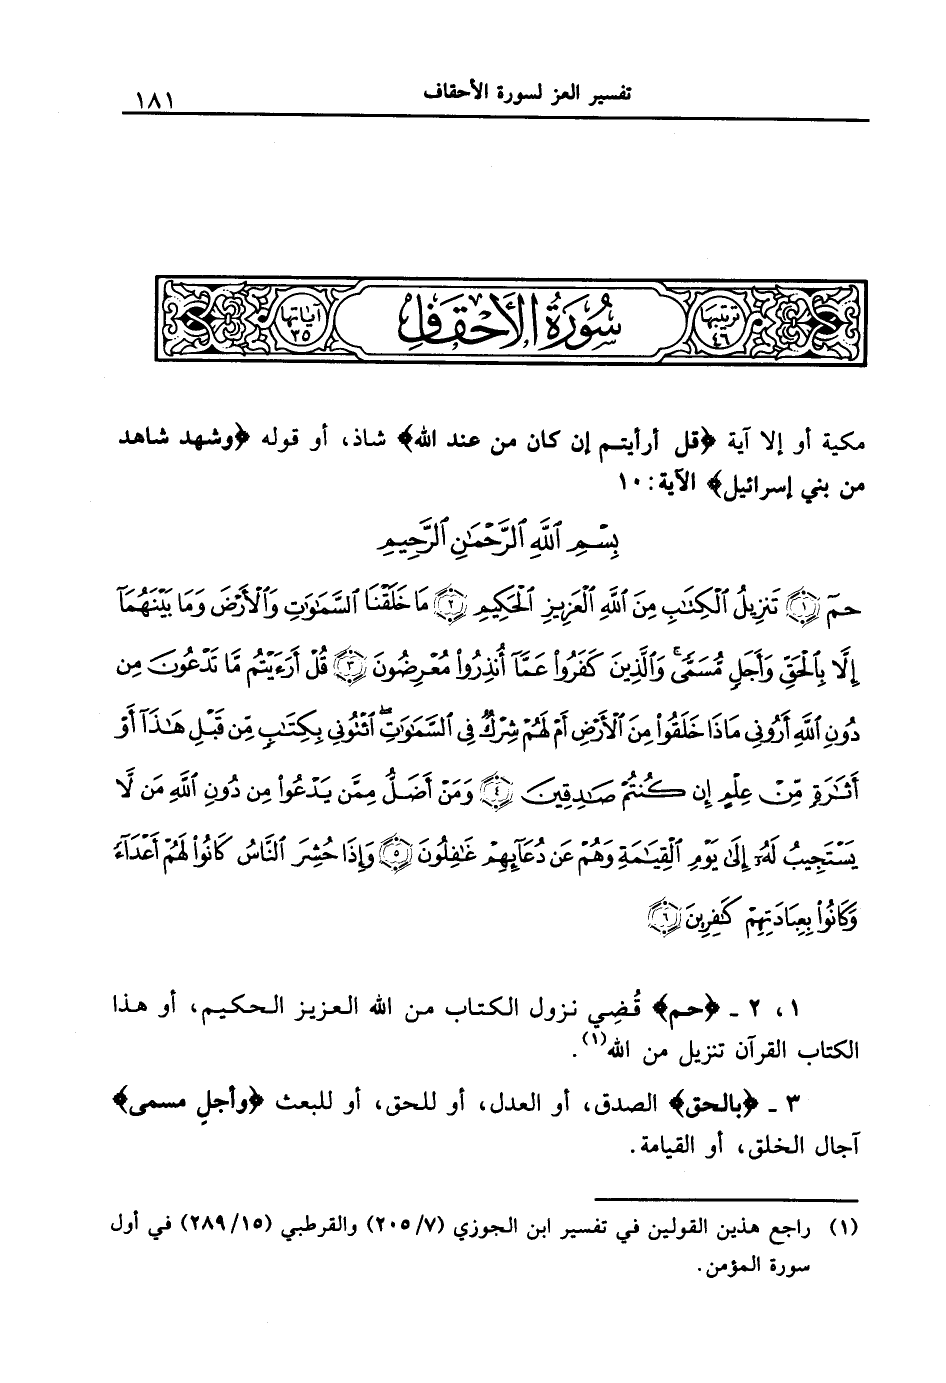 تفسير العز لسورة الأحقاف
١٨١
ترتيبها ٤٦
سُورَةُ الأَحْقَافِ
آياتها ٣٥
مكية أو إلا آية ﴿قل أرأيتم إن كان من عند الله﴾ شاذ، أو قوله ﴿وشهد شاهد
من بني إسرائيل﴾ الآية: ١٠
بِسْمِ ٱللَّهِ ٱلرَّحْمَٰنِ ٱلرَّحِيمِ
حمٓ ﴿١﴾ تَنزِيلُ ٱلْكِتَٰبِ مِنَ ٱللَّهِ ٱلْعَزِيزِ ٱلْحَكِيمِ ﴿٢﴾ مَا خَلَقْنَا ٱلسَّمَٰوَٰتِ وَٱلْأَرْضَ وَمَا بَيْنَهُمَآ
إِلَّا بِٱلْحَقِّ وَأَجَلٍ مُّسَمًّىۚ وَٱلَّذِينَ كَفَرُوا۟ عَمَّآ أُنذِرُوا۟ مُعْرِضُونَ ﴿٣﴾ قُلْ أَرَءَيْتُم مَّا تَدْعُونَ مِن
دُونِ ٱللَّهِ أَرُونِى مَاذَا خَلَقُوا۟ مِنَ ٱلْأَرْضِ أَمْ لَهُمْ شِرْكٌ فِى ٱلسَّمَٰوَٰتِۖ ٱئْتُونِى بِكِتَٰبٍ مِّن قَبْلِ هَٰذَآ أَوْ
أَثَٰرَةٍ مِّنْ عِلْمٍ إِن كُنتُمْ صَٰدِقِينَ ﴿٤﴾ وَمَنْ أَضَلُّ مِمَّن يَدْعُوا۟ مِن دُونِ ٱللَّهِ مَن لَّا
يَسْتَجِيبُ لَهُۥٓ إِلَىٰ يَوْمِ ٱلْقِيَٰمَةِ وَهُمْ عَن دُعَآئِهِمْ غَٰفِلُونَ ﴿٥﴾ وَإِذَا حُشِرَ ٱلنَّاسُ كَانُوا۟ لَهُمْ أَعْدَآءً
وَكَانُوا۟ بِعِبَادَتِهِمْ كَٰفِرِينَ ﴿٦﴾
١، ٢ ـ ﴿حم﴾ قُضِي نزول الكتاب من الله العزيز الحكيم، أو هذا
الكتاب القرآن تنزيل من الله(١).
٣ ـ ﴿بالحق﴾ الصدق، أو العدل، أو للحق، أو للبعث ﴿وأجلٍ مسمى﴾
آجال الخلق، أو القيامة.
(١) راجع هذين القولين في تفسير ابن الجوزي (٧/ ٢٠٥) والقرطبي (١٥/ ٢٨٩) في أول
سورة المؤمن.